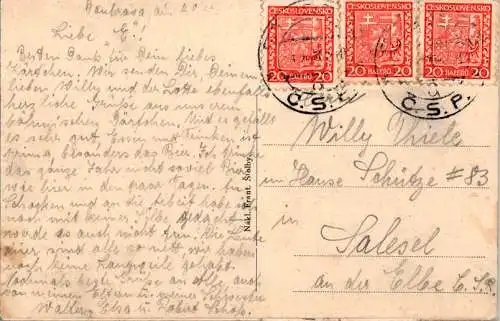 Liebe E.!
Besten Dank für Dein liebes
Kärtchen. Wir senden Dir Deinem
lieben Willy und der Lotte ebenfalls
herzliche Grüße aus unserem
böhmischen Gärtchen. Wird es gefällt
es sehr gut. Essen und Trinken ist
prima, besonders das Bier. Ich
das ganze Jahr nicht soviel Bier
wie hier in den paar Tagen. An
Schocken und an die Arbeit habe ich
noch mit keiner Silbe gedacht
werde es auch nicht tun. Die Leute
hier sind alle so nett, wir haben
noch keine Langeweile gehabt.
Nochmals beste Grüße an alle, auch
von meinen Eltern u. meiner Schwester
Walter, Elsa u.
Nakl. Frant.
ČESKOSLOVENSKO
20 HALÉŘŮ 20
ČESKOSLOVENSKO
20 HALÉŘŮ 20
ČESKOSLOVENSKO
20 HALÉŘŮ 20
Č.S.P.
Č.S.P.
Willy Thiele
im Hause Schütze #83
in
Salesel
an der Elbe Č.S.R.